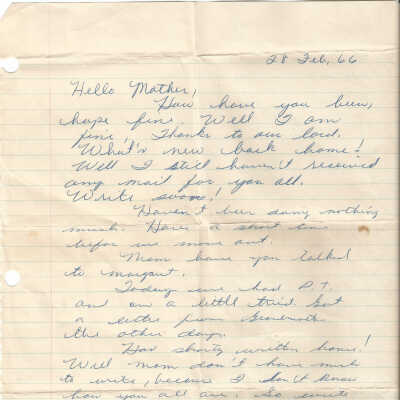 28 Feb, 66
Hello Mother,
How have you been,
hope fine. Well I am
fine, Thanks to our lord.
What's new back home!
Well I still haven't received
any mail for you all.
Write soon!
Haven't been doing nothing
much. Have a short time
befor we move out.
Mom have you talked
to margaret.
Today we had P.T.
and am a little tried. Got
a letter from
the other day.
Has shorty written home!
Well mom don't have much
to write, because I don't know
how you all are. So write